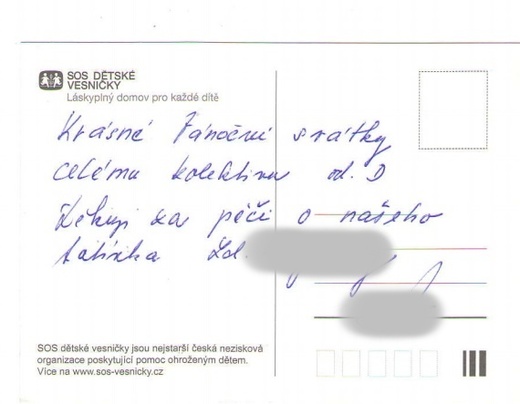 SOS DĚTSKÉ
VESNIČKY
Láskyplný domov pro každé dítě
Krásné Vánoční svátky
celému kolektivu od. D
Děkuji za péči o našeho
tatínka Zd.
SOS dětské vesničky jsou nejstarší česká nezisková
organizace poskytující pomoc ohroženým dětem.
Více na www.sos-vesnicky.cz